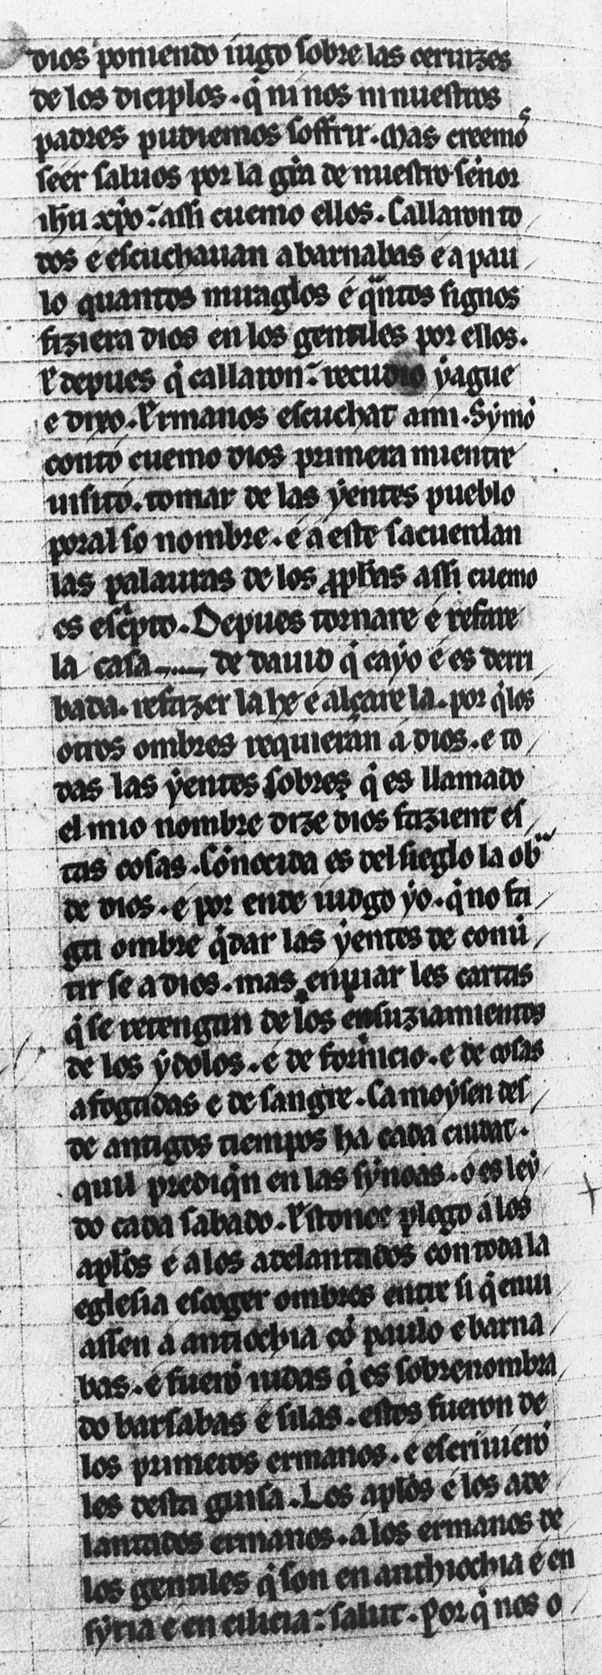 dios poniendo iugo sobre las ceruizes
de los diciplos. q̃ ni nos ni nuestros
padres pudiemos soffrir. Mas creemos
seer saluos por la gr̃a de nuestro sẽnor
ih̃u xp̃o: assi cuemo ellos. Callaron to
dos e escuchauan a barnabas e a pau
lo quantos miraglos e q̃ntos signos
fiziera dios en los gentiles por ellos.
E depues q̃ callaron: recudio yague
e dixo. Ermanos escuchat a mi. Symõ
conto cuemo dios primera mientre
uisito. tomar de las yentes pueblo
poral so nombre. e a este sacuerdan
las palauras de los ꝓph̃as assi cuemo
es esc̃pto. Depues tornare e refare
la casa de dauid q̃ cayo e es derri
bada. refazer la he e alçare la. por q̃ los
otros ombres requieran a dios. e to
das las yentes sobre q̃ es llamado
el mio nombre dize dios fazient es
tas cosas. Cõnocida es del sieglo la obª
de dios. e por ende iudgo yo. q̃ no fa
ga ombre q̃dar las yentes de conũ
tir se a dios. mas enuiar les cartas
q̃ se retengan de los ensuziamientos
de los ydolos. e de fornicio. e de cosas
afogadas e de sangre. Ca moysen des
de antigos tiempos ha cada ciudat.
quil prediq̃n en las synoas. o es ley
do cada sabado. Estonce plogo a los
apl̃os e a los adelantados con toda la
eglesia escoger ombres entre si q̃ enui
assen a antiochia cõ paulo e barna
bas. e fuerõ iudas q̃ es sobrenombra
do barsabas e silas. estos fueron de
los primeros ermanos. e escriuierõ
les desta guisa. Los apl̃os e los ade
lantados ermanos. a los ermanos de
los gentiles q̃ son en anthiochia e en
syria e en cilicia: salut. Por q̃ nos o